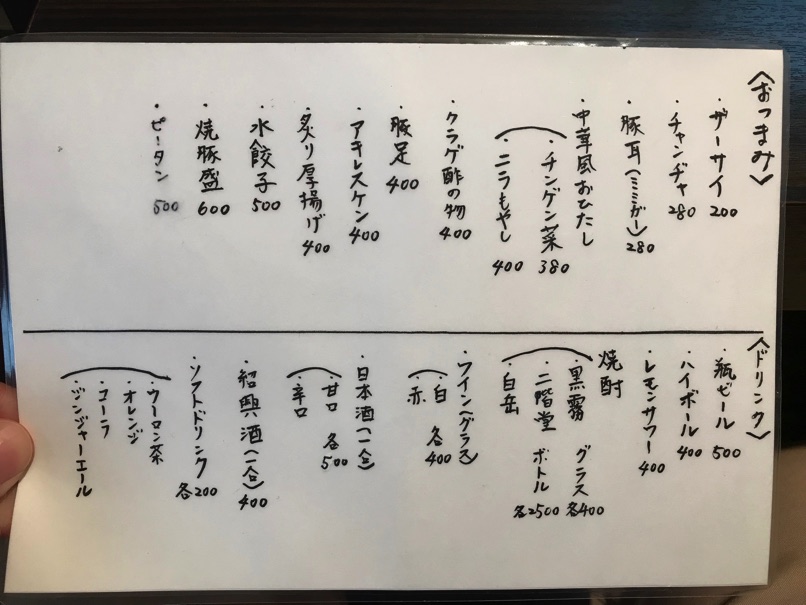 〈おつまみ〉
・ザーサイ 200
・チャンヂャ 280
・豚耳(ミミガー) 280
・中華風おひたし
・チンゲン菜 380
・ニラもやし 400
・クラゲ酢の物 400
・豚足 400
・アキレスケン 400
・炙り厚揚げ 400
・水餃子 500
・焼豚盛 600
・ピータン 500
〈ドリンク〉
・瓶ビール 500
・ハイボール 400
・レモンサワー 400
焼酎
・黒霧 グラス 各400
・二階堂 ボトル 各2500
・白岳
・ワイン(グラス)
・白 各400
・赤
・日本酒(一合)
・甘口 各500
・辛口
・紹興酒(一合) 400
・ソフトドリンク 各200
・ウーロン茶
・オレンジ
・コーラ
・ジンジャーエール